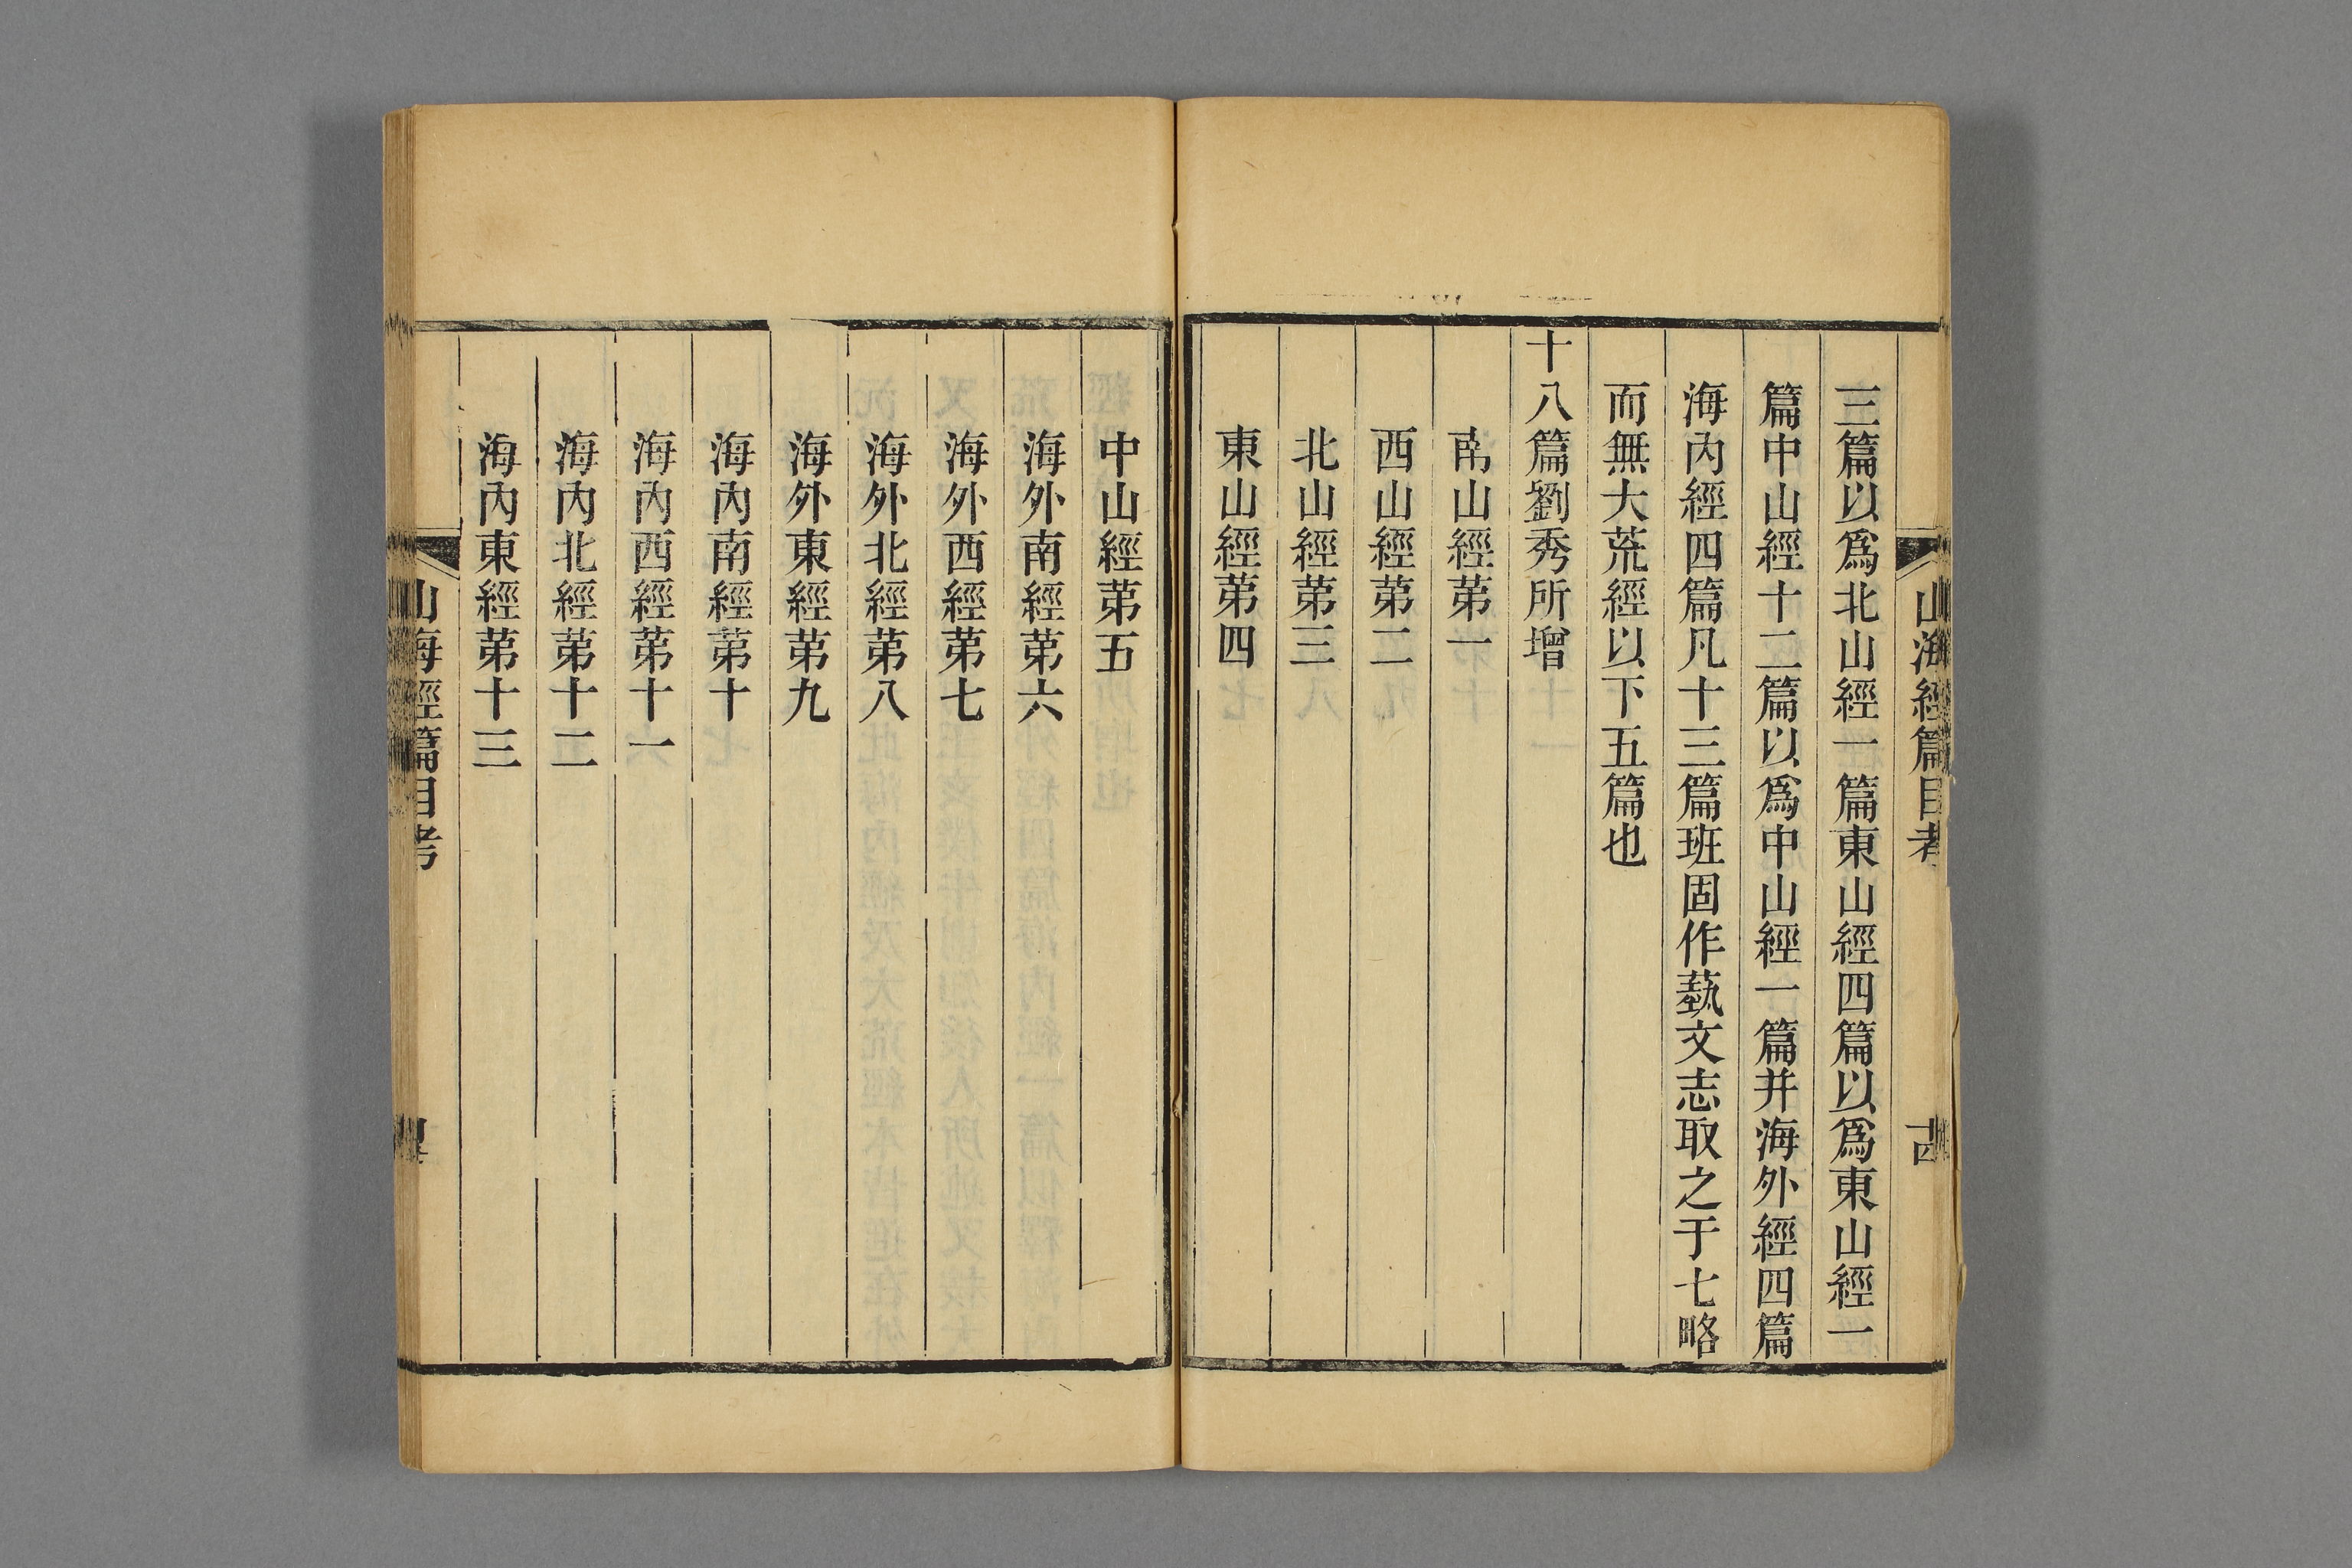 山海經篇目考
三篇以爲北山經一篇東山經四篇以爲東山經一
篇中山經十二篇以爲中山經一篇并海外經四篇
海內經四篇凡十三篇班固作藝文志取之于七略
而無大荒經以下五篇也
十八篇劉秀所增
南山經苐一
西山經苐二
北山經苐三
東山經苐四
中山經苐五
海外南經苐六
海外西經苐七
海外北經苐八
海外東經苐九
海內南經苐十
海內西經苐十一
海內北經苐十二
海內東經苐十三
山海經篇目考